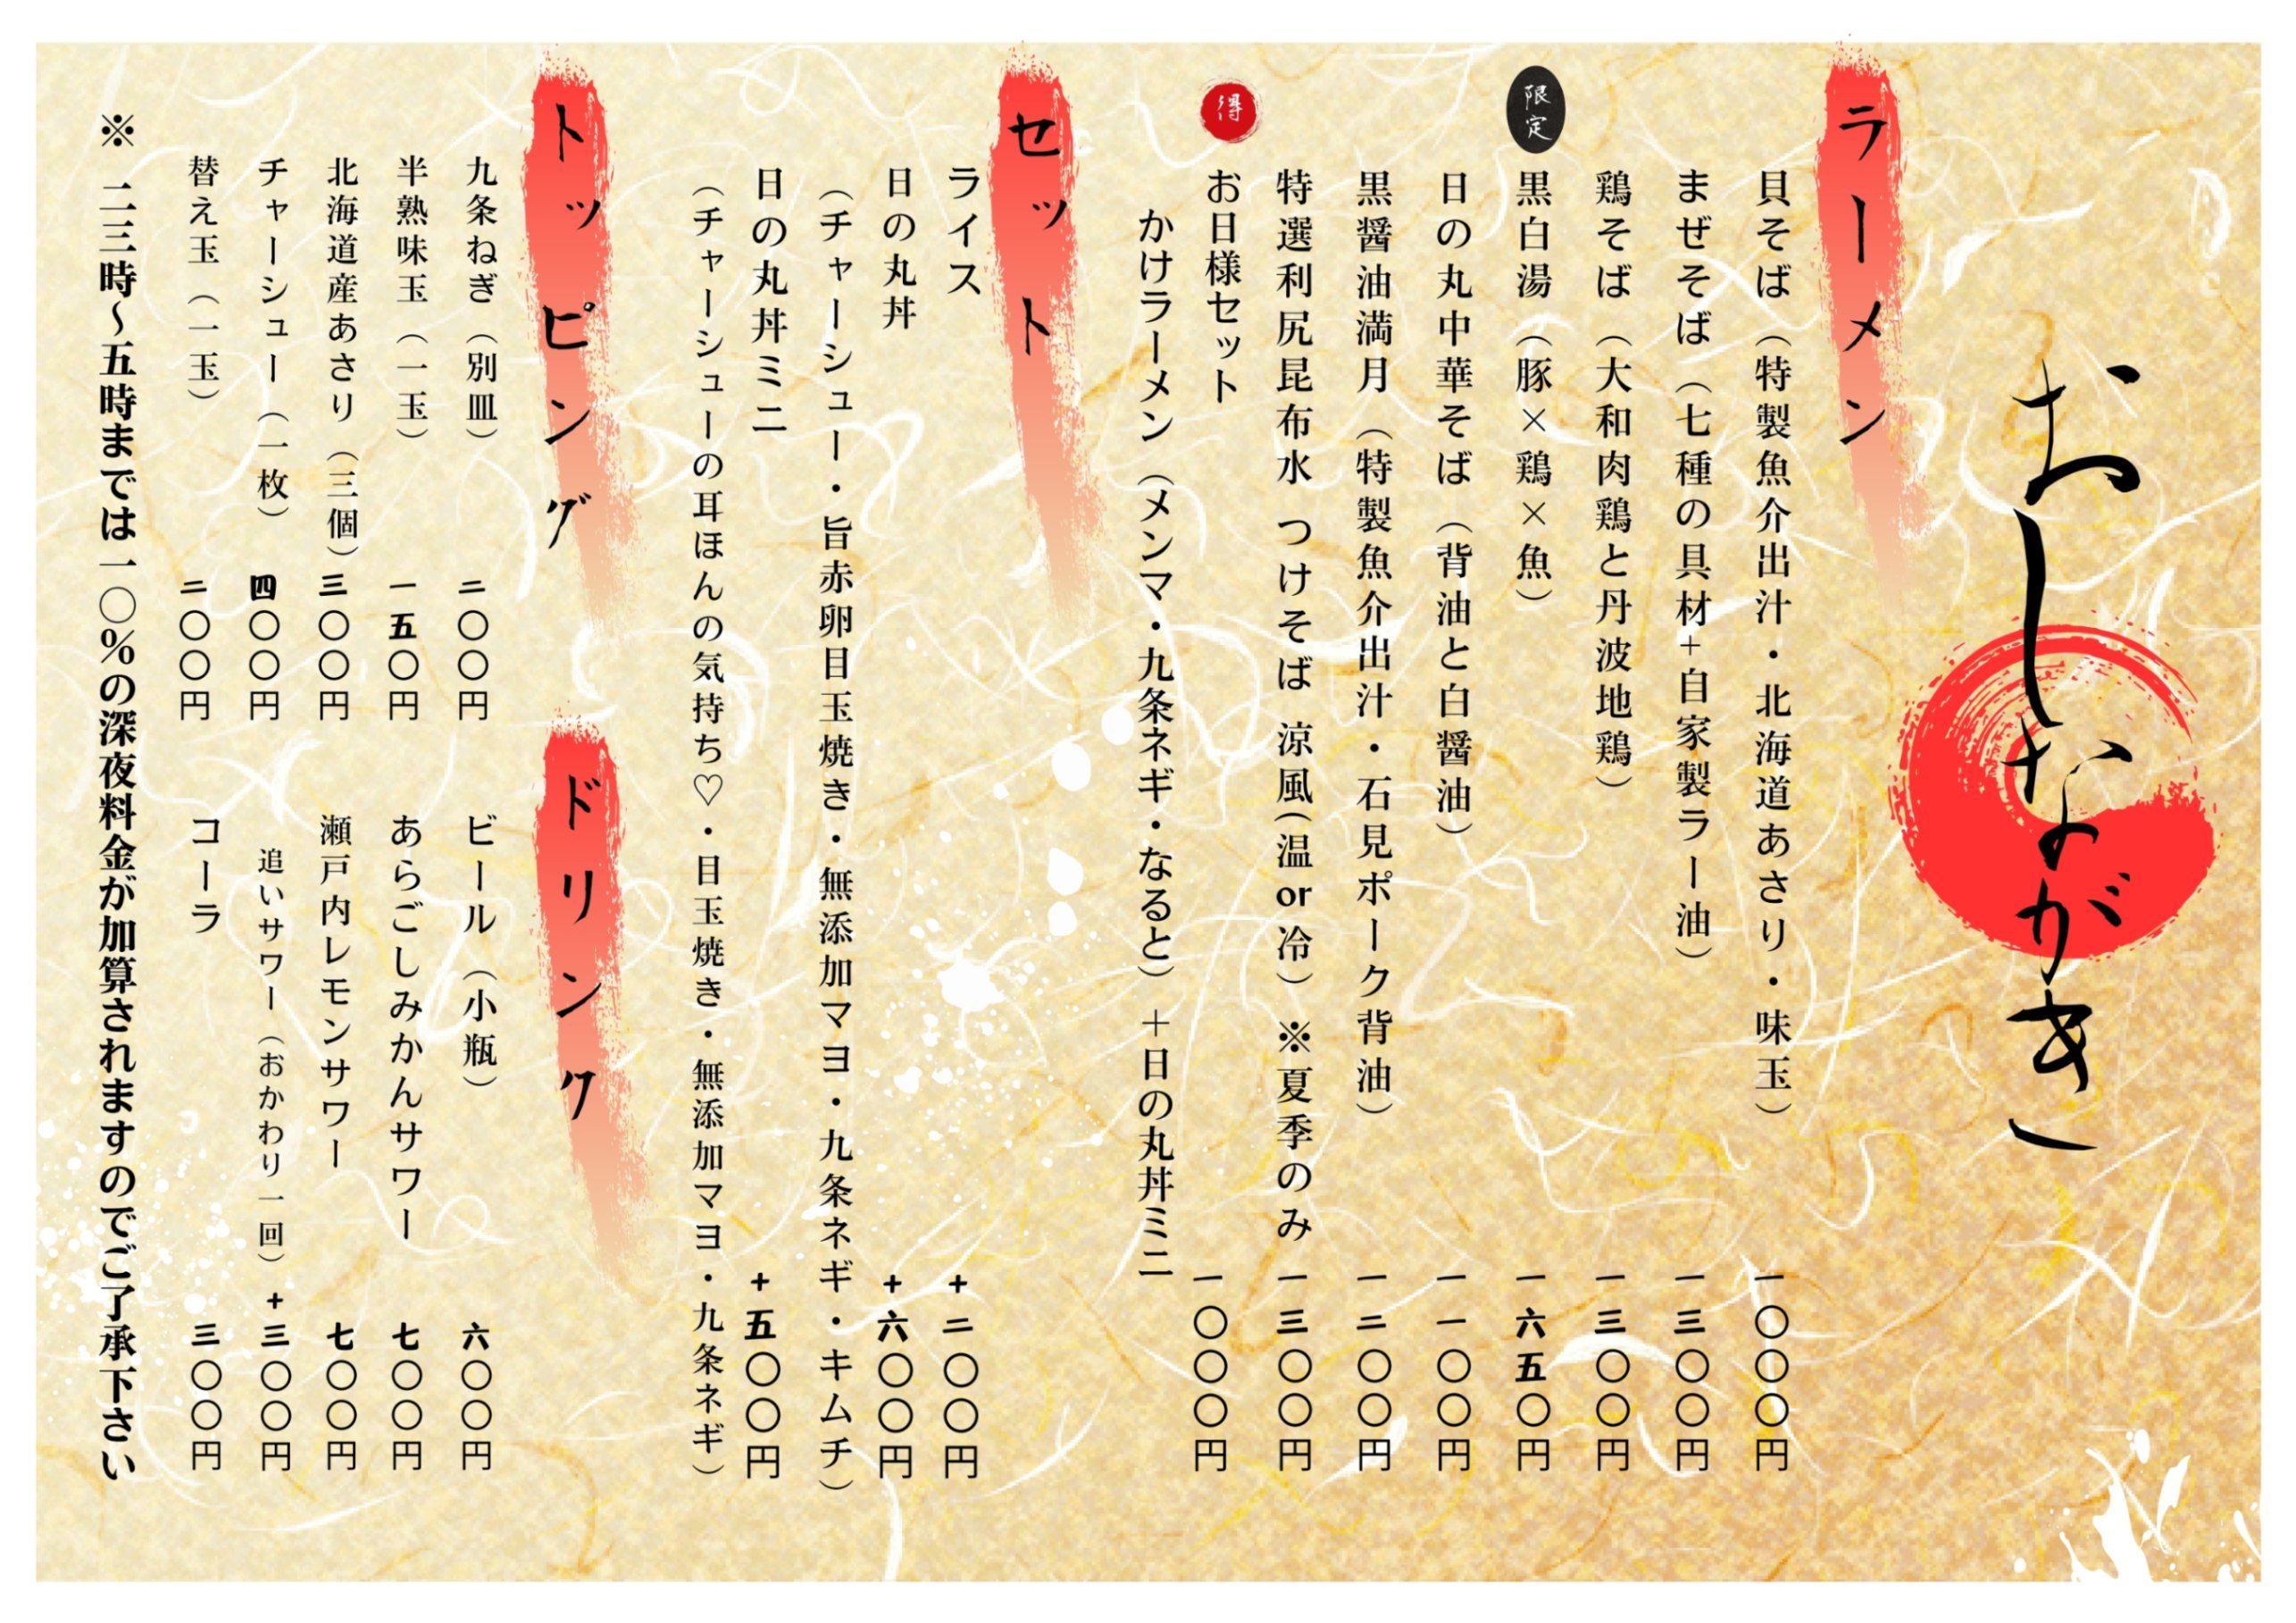 おしながき
ラーメン
貝そば（特製魚介出汁・北海道あさり・味玉） 一〇〇〇円
まぜそば（七種の具材+自家製ラー油） 一三〇〇円
鶏そば（大和肉鶏と丹波地鶏） 一三〇〇円
限定
黒白湯（豚×鶏×魚） 一六五〇円
日の丸中華そば（背油と白醤油） 一一〇〇円
黒醤油満月（特製魚介出汁・石見ポーク背油） 一二〇〇円
特選利尻昆布水 つけそば 涼風(温or冷) ※夏季のみ 一三〇〇円
得
お日様セット 一〇〇〇円
かけラーメン（メンマ・九条ネギ・なると）＋日の丸丼ミニ
セット
ライス +二〇〇円
日の丸丼 +六〇〇円
（チャーシュー・旨赤卵目玉焼き・無添加マヨ・九条ネギ・キムチ）
日の丸丼ミニ +五〇〇円
（チャーシューの耳ほんの気持ち♡・目玉焼き・無添加マヨ・九条ネギ）
トッピング
九条ねぎ（別皿） 二〇〇円
半熟味玉（一玉） 一五〇円
北海道産あさり（三個） 三〇〇円
チャーシュー（一枚） 四〇〇円
替え玉（一玉） 二〇〇円
ドリンク
ビール（小瓶） 六〇〇円
あらごしみかんサワー 七〇〇円
瀬戸内レモンサワー 七〇〇円
追いサワー（おかわり一回） +三〇〇円
コーラ 三〇〇円
※ 二三時〜五時までは一〇%の深夜料金が加算されますのでご了承下さい